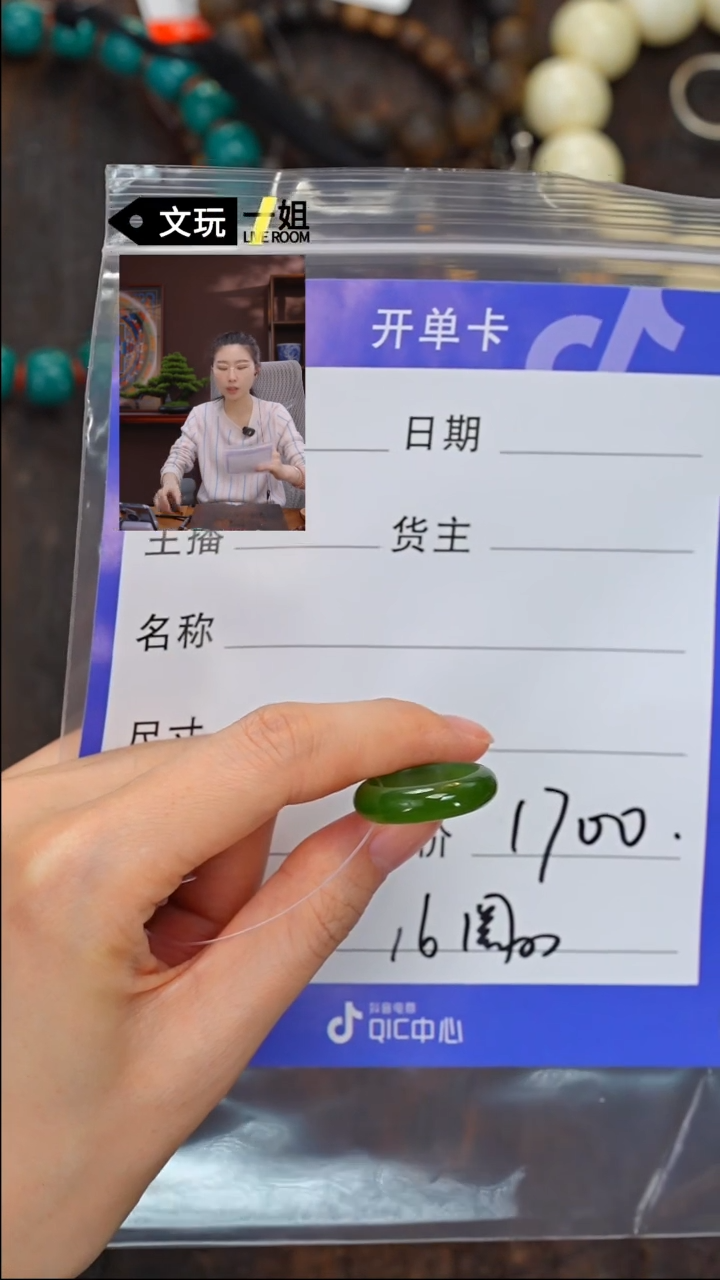 文玩一姐
LIVE ROOM
开单卡
日期
主播 货主
名称
尺寸
价 1700.
16圈口
抖音电商
QIC中心